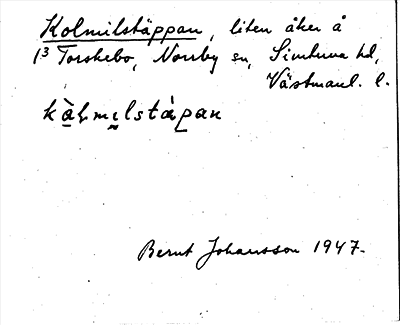 Kolmilstäppan, liten åker å
1³ Torskebo, Norrby sn, Simtuna hd,
Västmanl. l.
kàlmılstápan
Bernt Johansson 1947.